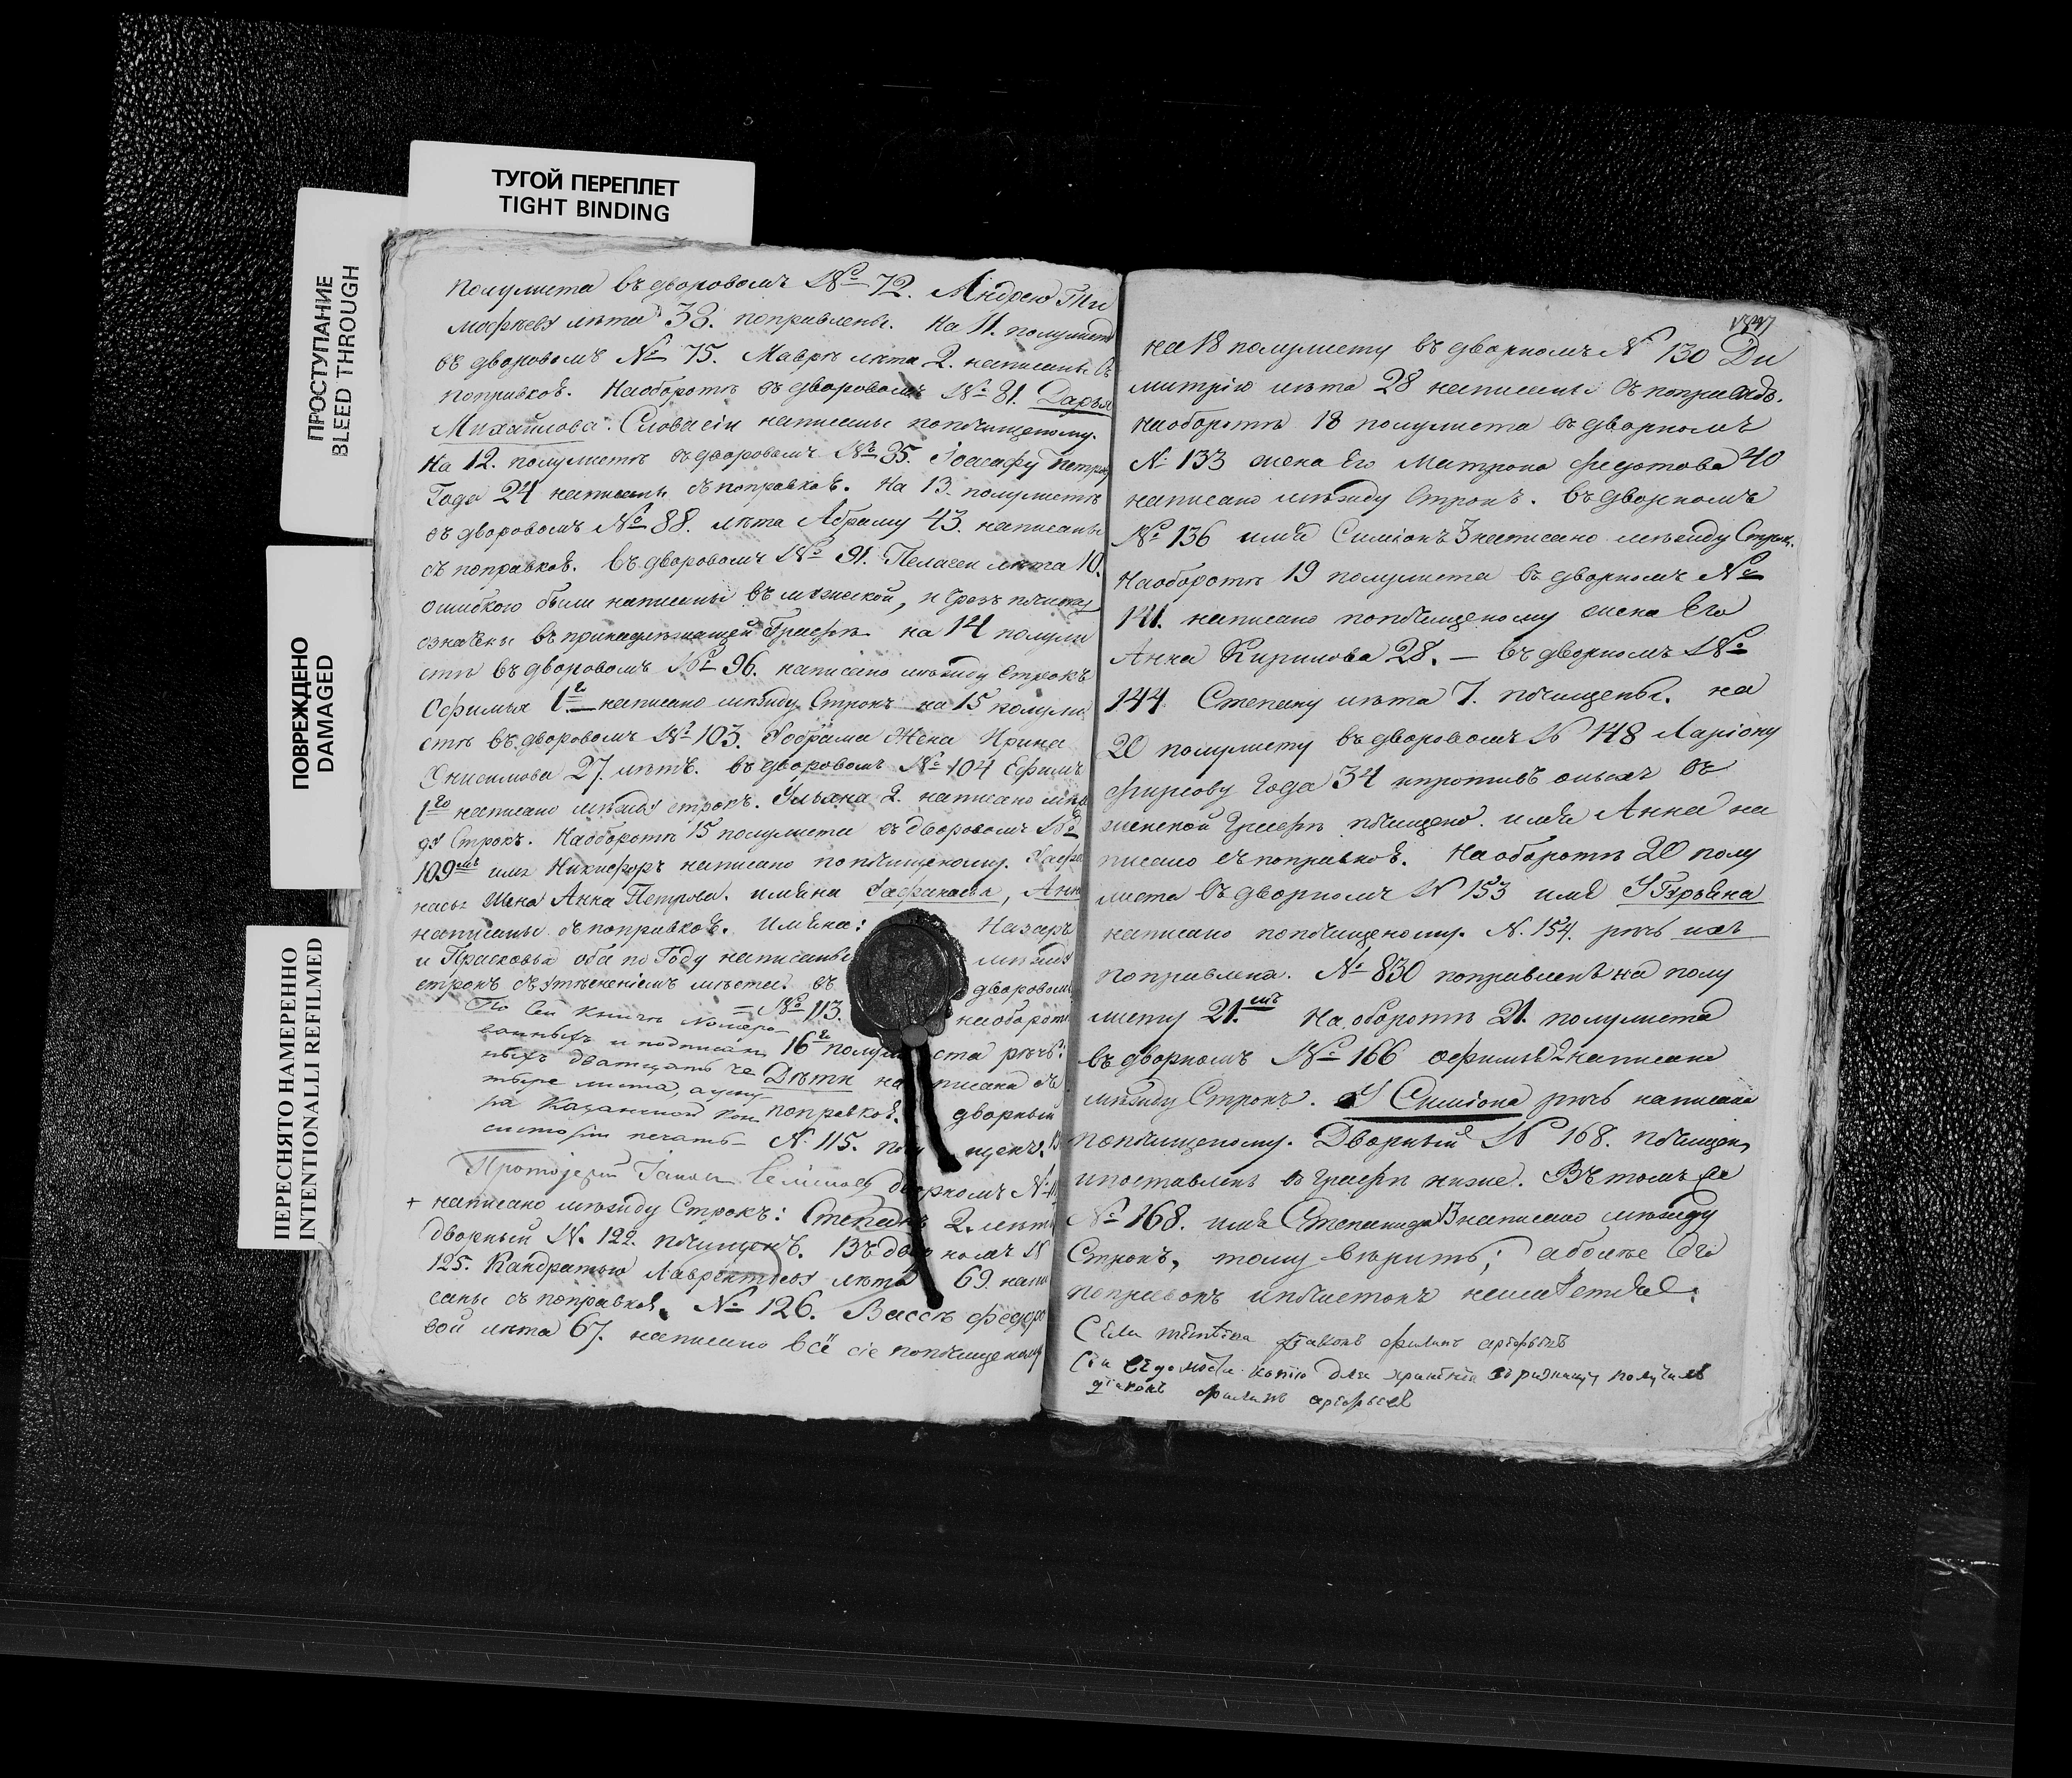 ТУГОЙ ПЕРЕПЛЕТ
TIGHT BINDING
ПРОСТУПАНИЕ
BLEED THROUGH
ПОВРЕЖДЕНО
DAMAGED
ПЕРЕСНЯТО НАМЕРЕННО
INTENTIONALLI REFILMED
полулиста въ дворовомъ № 72. Андрею Ти
мофееву лѣта 38. поправлены. На 11. полулистѣ
въ дворовомъ № 75. Маврѣ лѣта 2. написаны съ
поправкой. На оборотѣ въ дворовомъ № 81. Дарья
Михайлова. Слова сіи написаны поподчищеному.
На 12. полулистѣ въ дворовомъ № 85. Іоасафу Петрову
Года 24 написаны съ поправкой. На 13. полулистѣ
въ дворовомъ № 88. лѣта Абраму 43. написаны
съ поправкой. Въ дворовомъ № 91. Пелагеи лѣта 10.
ошибкою были написаны въ мужеской, и
въ принадлежащей Графѣ на 14 полули
стѣ въ дворовомъ № 96. написано между строкъ
Ефимья 1. написано между строкъ на 15 полули
стѣ въ дворовомъ № 103. Жена Ирина
Онисимова 27 лѣтъ. въ дворовомъ № 104 Ефимъ
1го написано между строкъ. Ульяна 2. написано меж
ду строкъ. На оборотѣ 15 полулиста въ дворовомъ №
109мъ имя Никифоръ написано поподчищеному.
жена Анна Петрова. имяна
написаны съ поправкой. Имяна: Назаръ
и Прасковья оба по Году написаны между
строкъ съ утѣсненіемъ мѣста. въ дворовомъ
№ 113. на оборотѣ
16го полулиста рѣчь:
Дѣти написана съ
поправкой. дворный
№ 115. подчищенъ. Въ
дворномъ №
По сей книгѣ номеро
ванныхъ и подписан
ныхъ двадцать че
тыре листа, а
ра Казанской кон
систоріи печать
Протоіерей
+ написано между строкъ: Степанъ 2. лѣтъ
дворный № 122. подчищенъ. Въ дворномъ №
125. Кандратью Лаврентьеву лѣта 69. напи
саны съ поправкой. № 126. Вассѣ Федоро
вой лѣта 67. написано всё сіе поподчищеному
на 18 полулисту въ дворномъ № 130 Ди
митрію лѣта 28 написаны съ поправкой.
на оборотѣ 18 полулиста въ дворномъ
№ 133 жена Его Матрона Федотова 40
написано между строкъ. въ дворномъ
№ 136 имя Симіонъ 3 написано между строк.
На оборотѣ 19 полулиста въ дворномъ №
141. написано поподчищеному жена Его
Анна Кирилова 28. — въ дворномъ №
144 Степану лѣта 7. подчищены. на
20 полулисту въ дворовомъ № 148 Ларіону
Фирсову Года 34 и противъ онаго въ
женской Графѣ подчищено. имя Анна на
писано съ поправкой. На оборотѣ 20 полу
листа въ дворномъ № 153 имя
написано поподчищеному. № 154. рѣчь ихъ
поправлена. № 830 поправленъ на полу
листу 21.мъ На оборотѣ 21. полулиста
въ дворномъ № 166 Ефимья 2 написана
между строкъ. У Симіона рѣчь написана
поподчищеному. Дворный № 168. подчищен,
и поставленъ въ графѣ ниже. Въ томъ же
№ 168. имя Степанида 3 написано между
строкъ, тому вѣрить; а болѣе сего
поправокъ и подчистокъ
діаконъ Филипъ
Сіи вѣдомости копію для храненія въ ризницу получилъ
діаконъ Филипъ